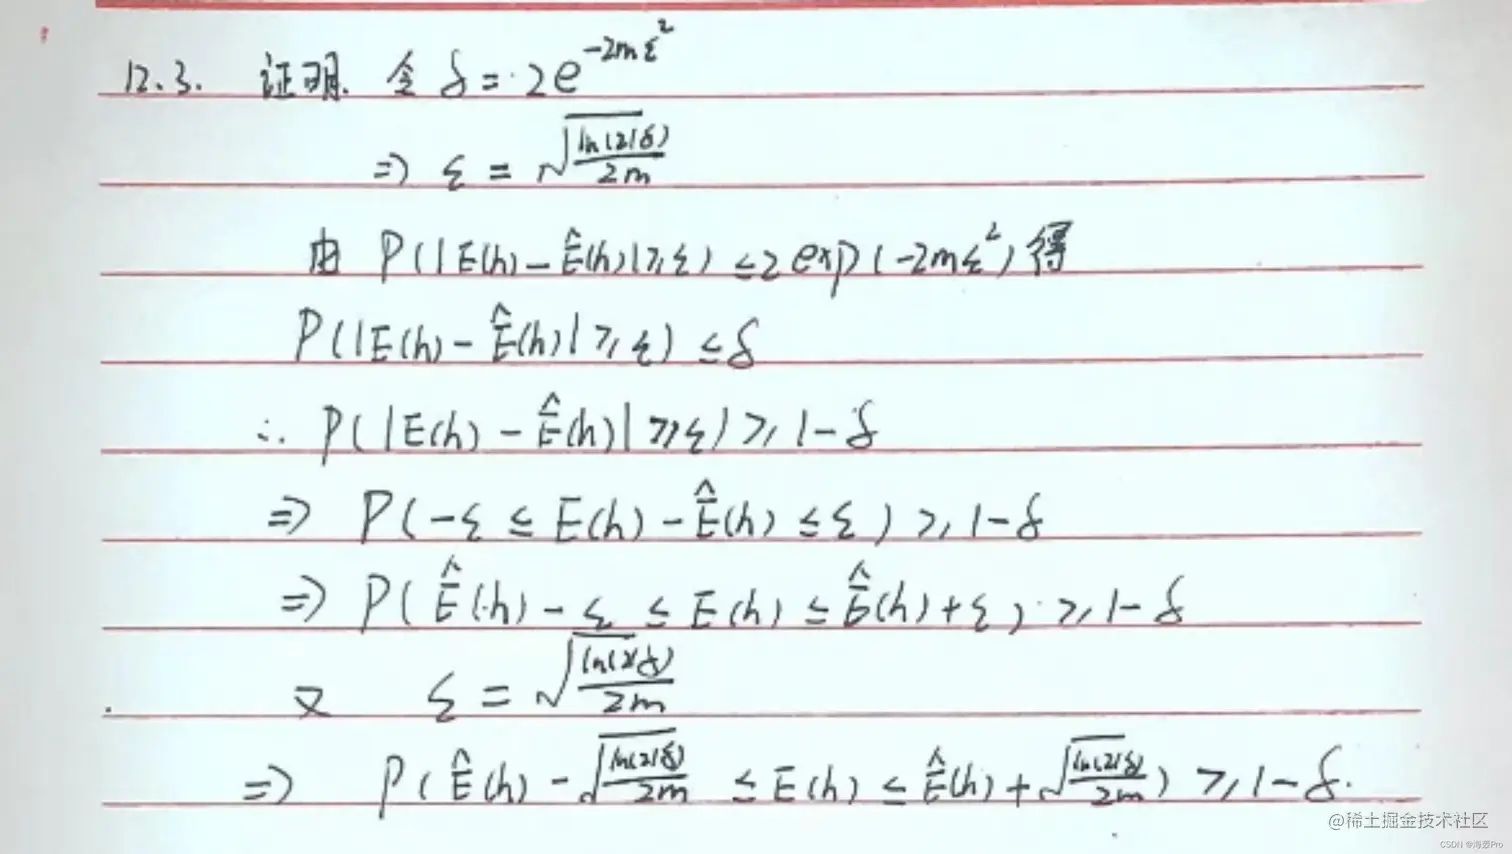 12.3. 证明. 令 δ = 2e^{-2mε^2}
⇒ ε = √(ln(2/δ)/2m)
由 P(|E(h) - Ê(h)| ≥ ε) ≤ 2exp(-2mε^2) 得
P(|E(h) - Ê(h)| ≥ ε) ≤ δ
∴ P(|E(h) - Ê(h)| ≥ ε) ≥ 1-δ
⇒ P(-ε ≤ E(h) - Ê(h) ≤ ε) ≥ 1-δ
⇒ P(Ê(h) - ε ≤ E(h) ≤ Ê(h) + ε) ≥ 1-δ
又 ε = √(ln(2/δ)/2m)
⇒ P(Ê(h) - √(ln(2/δ)/2m) ≤ E(h) ≤ Ê(h) + √(ln(2/δ)/2m)) ≥ 1-δ.
@稀土掘金技术社区
CSDN @海轰Pro